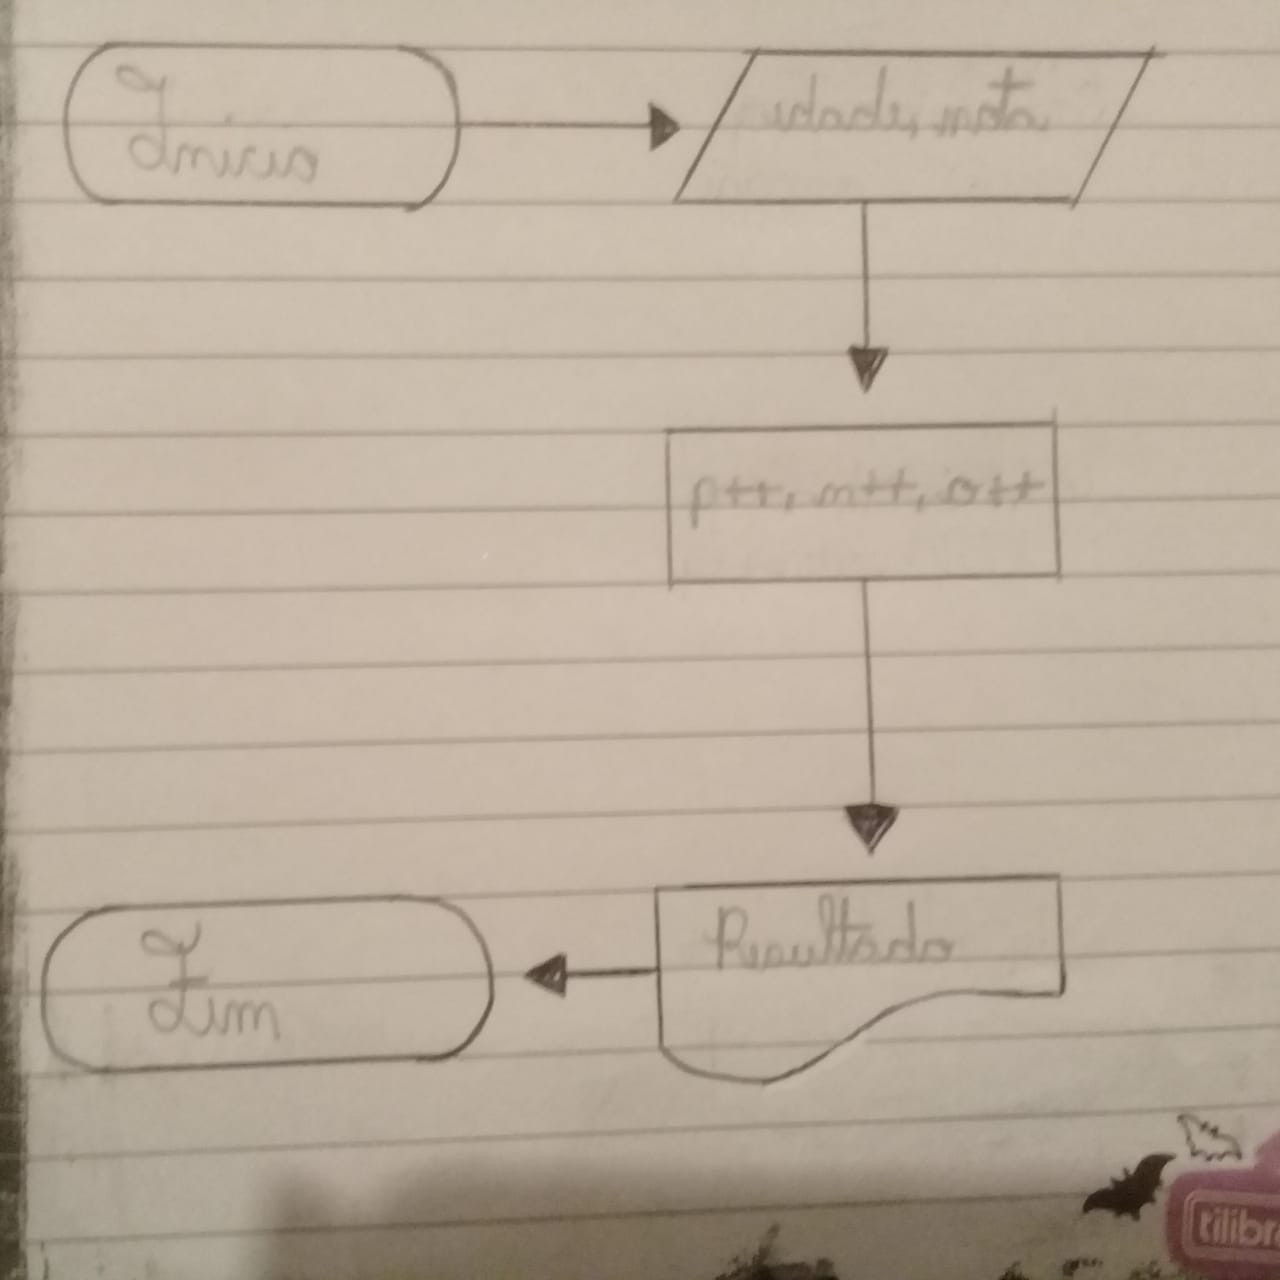 Início
idade, nota
p++, m++, o++
Resultado
Fim
tilibra